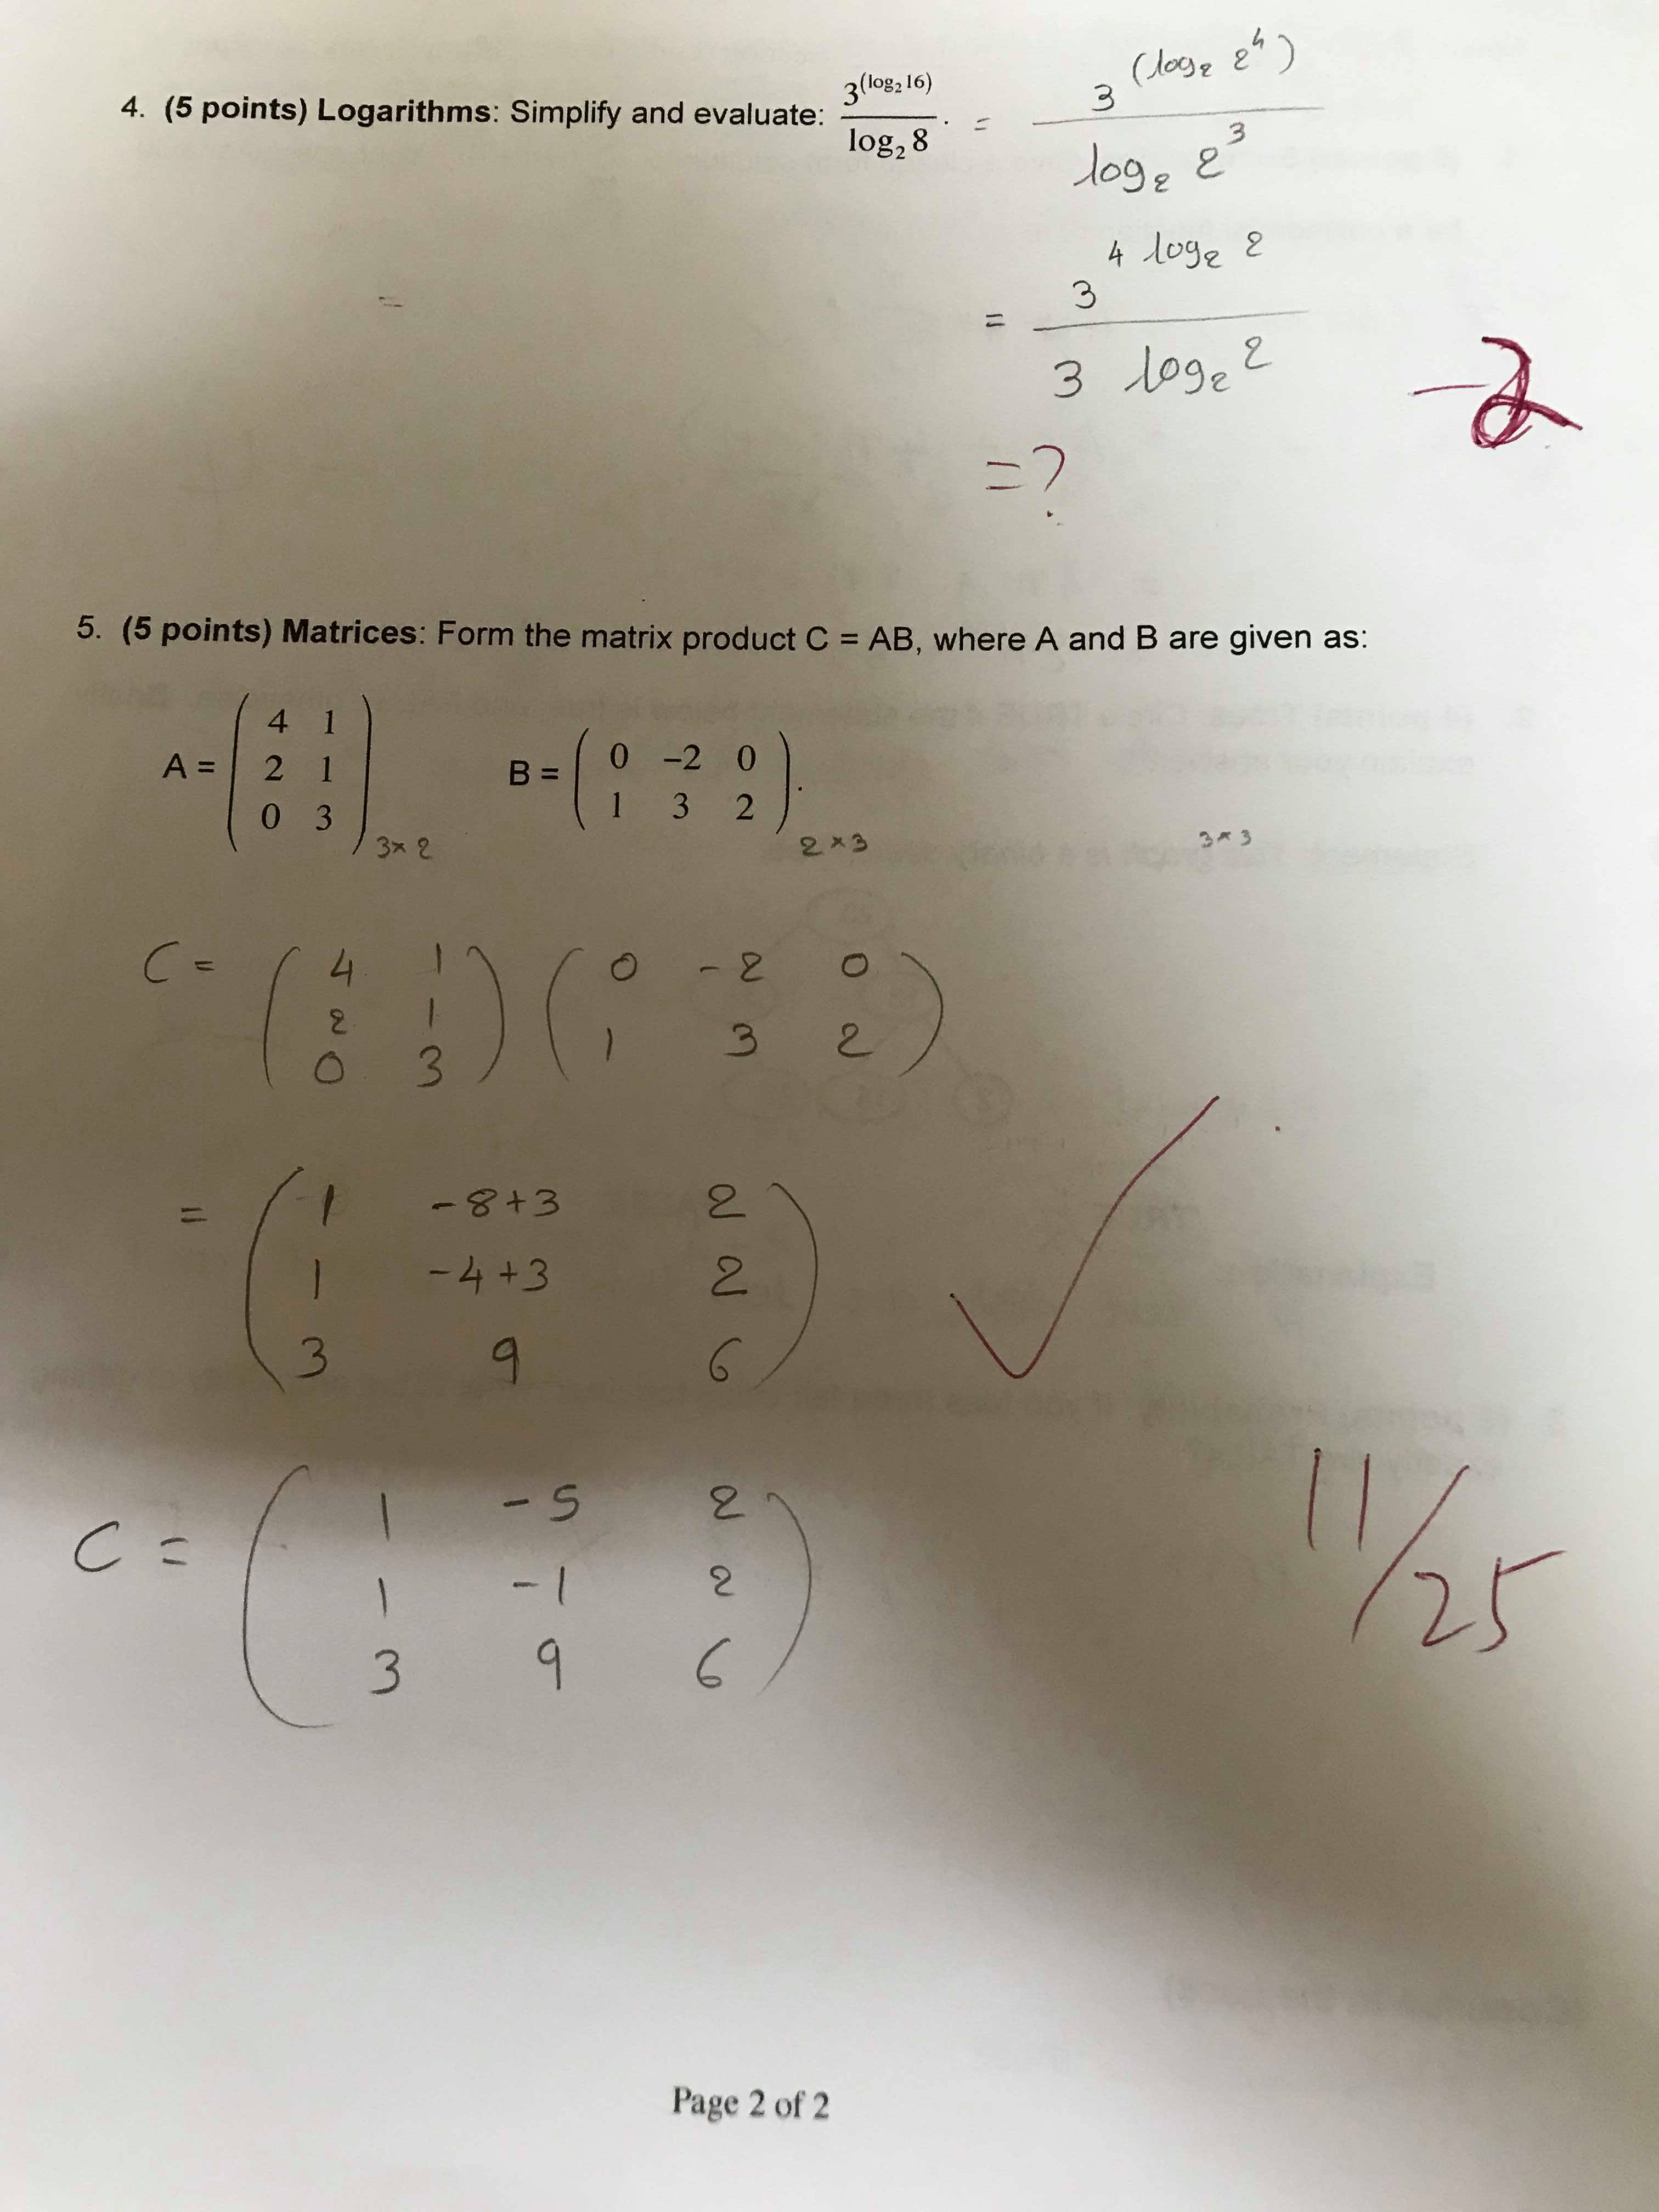 4. (5 points) Logarithms: Simplify and evaluate: 3^(log₂16) / log₂ 8 . = 3^(log₂ 2⁴) / log₂ 2³
=
= 3^(4 log₂ 2) / 3 log₂ 2
-2
= ?
5. (5 points) Matrices: Form the matrix product C = AB, where A and B are given as:
A = ( 4 1
2 1
0 3 ) 3×2
B = ( 0 −2 0
1 3 2 ). 2×3
3×3
C = ( 4 1
2 1
0 3 ) ( 0 -2 0
1 3 2 )
= ( 1 -8+3 2
1 -4+3 2
3 9 6 )
C = ( 1 -5 2
1 -1 2
3 9 6 )
11/25
Page 2 of 2